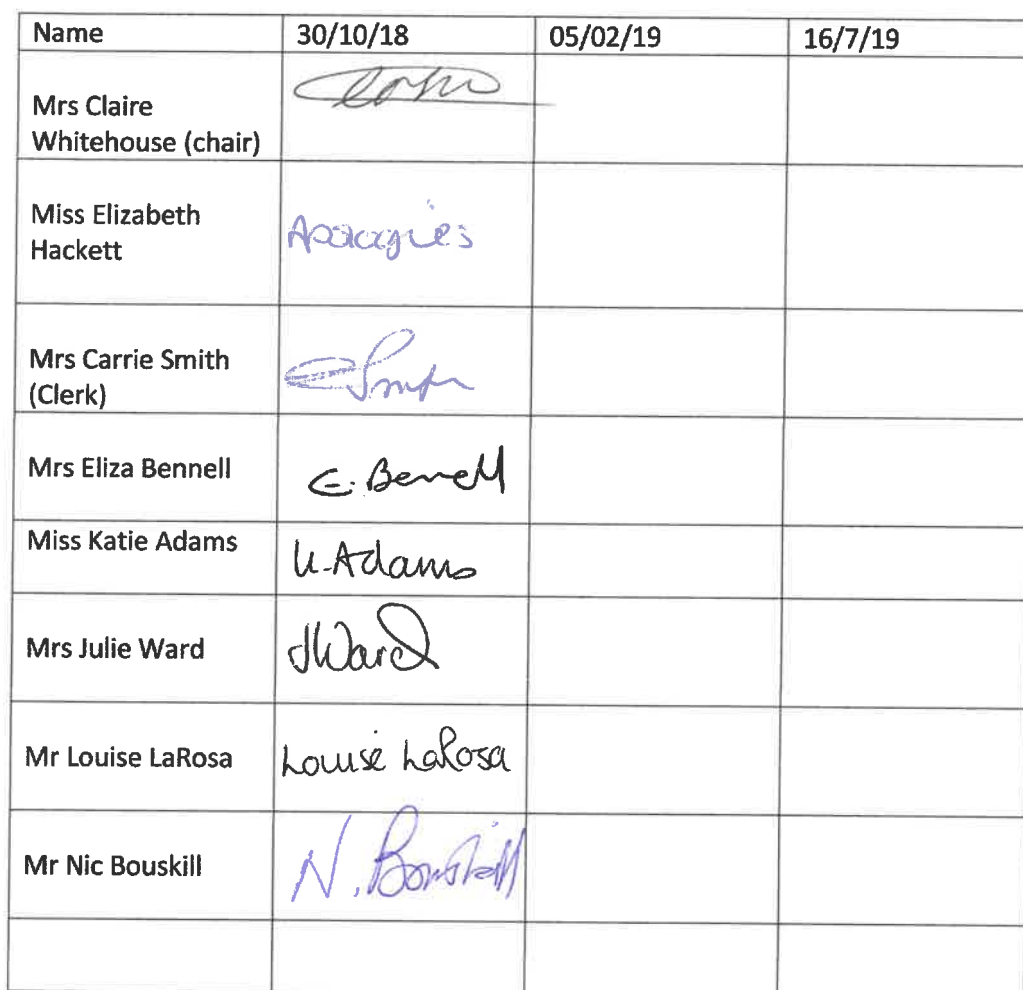 Name 30/10/18 05/02/19 16/7/19
Mrs Claire
Whitehouse (chair)
Miss Elizabeth
Hackett
Apologies
Mrs Carrie Smith
(Clerk)
Mrs Eliza Bennell E. Bennell
Miss Katie Adams K. Adams
Mrs Julie Ward JWard
Mr Louise LaRosa Louise LaRosa
Mr Nic Bouskill N. Bouskill